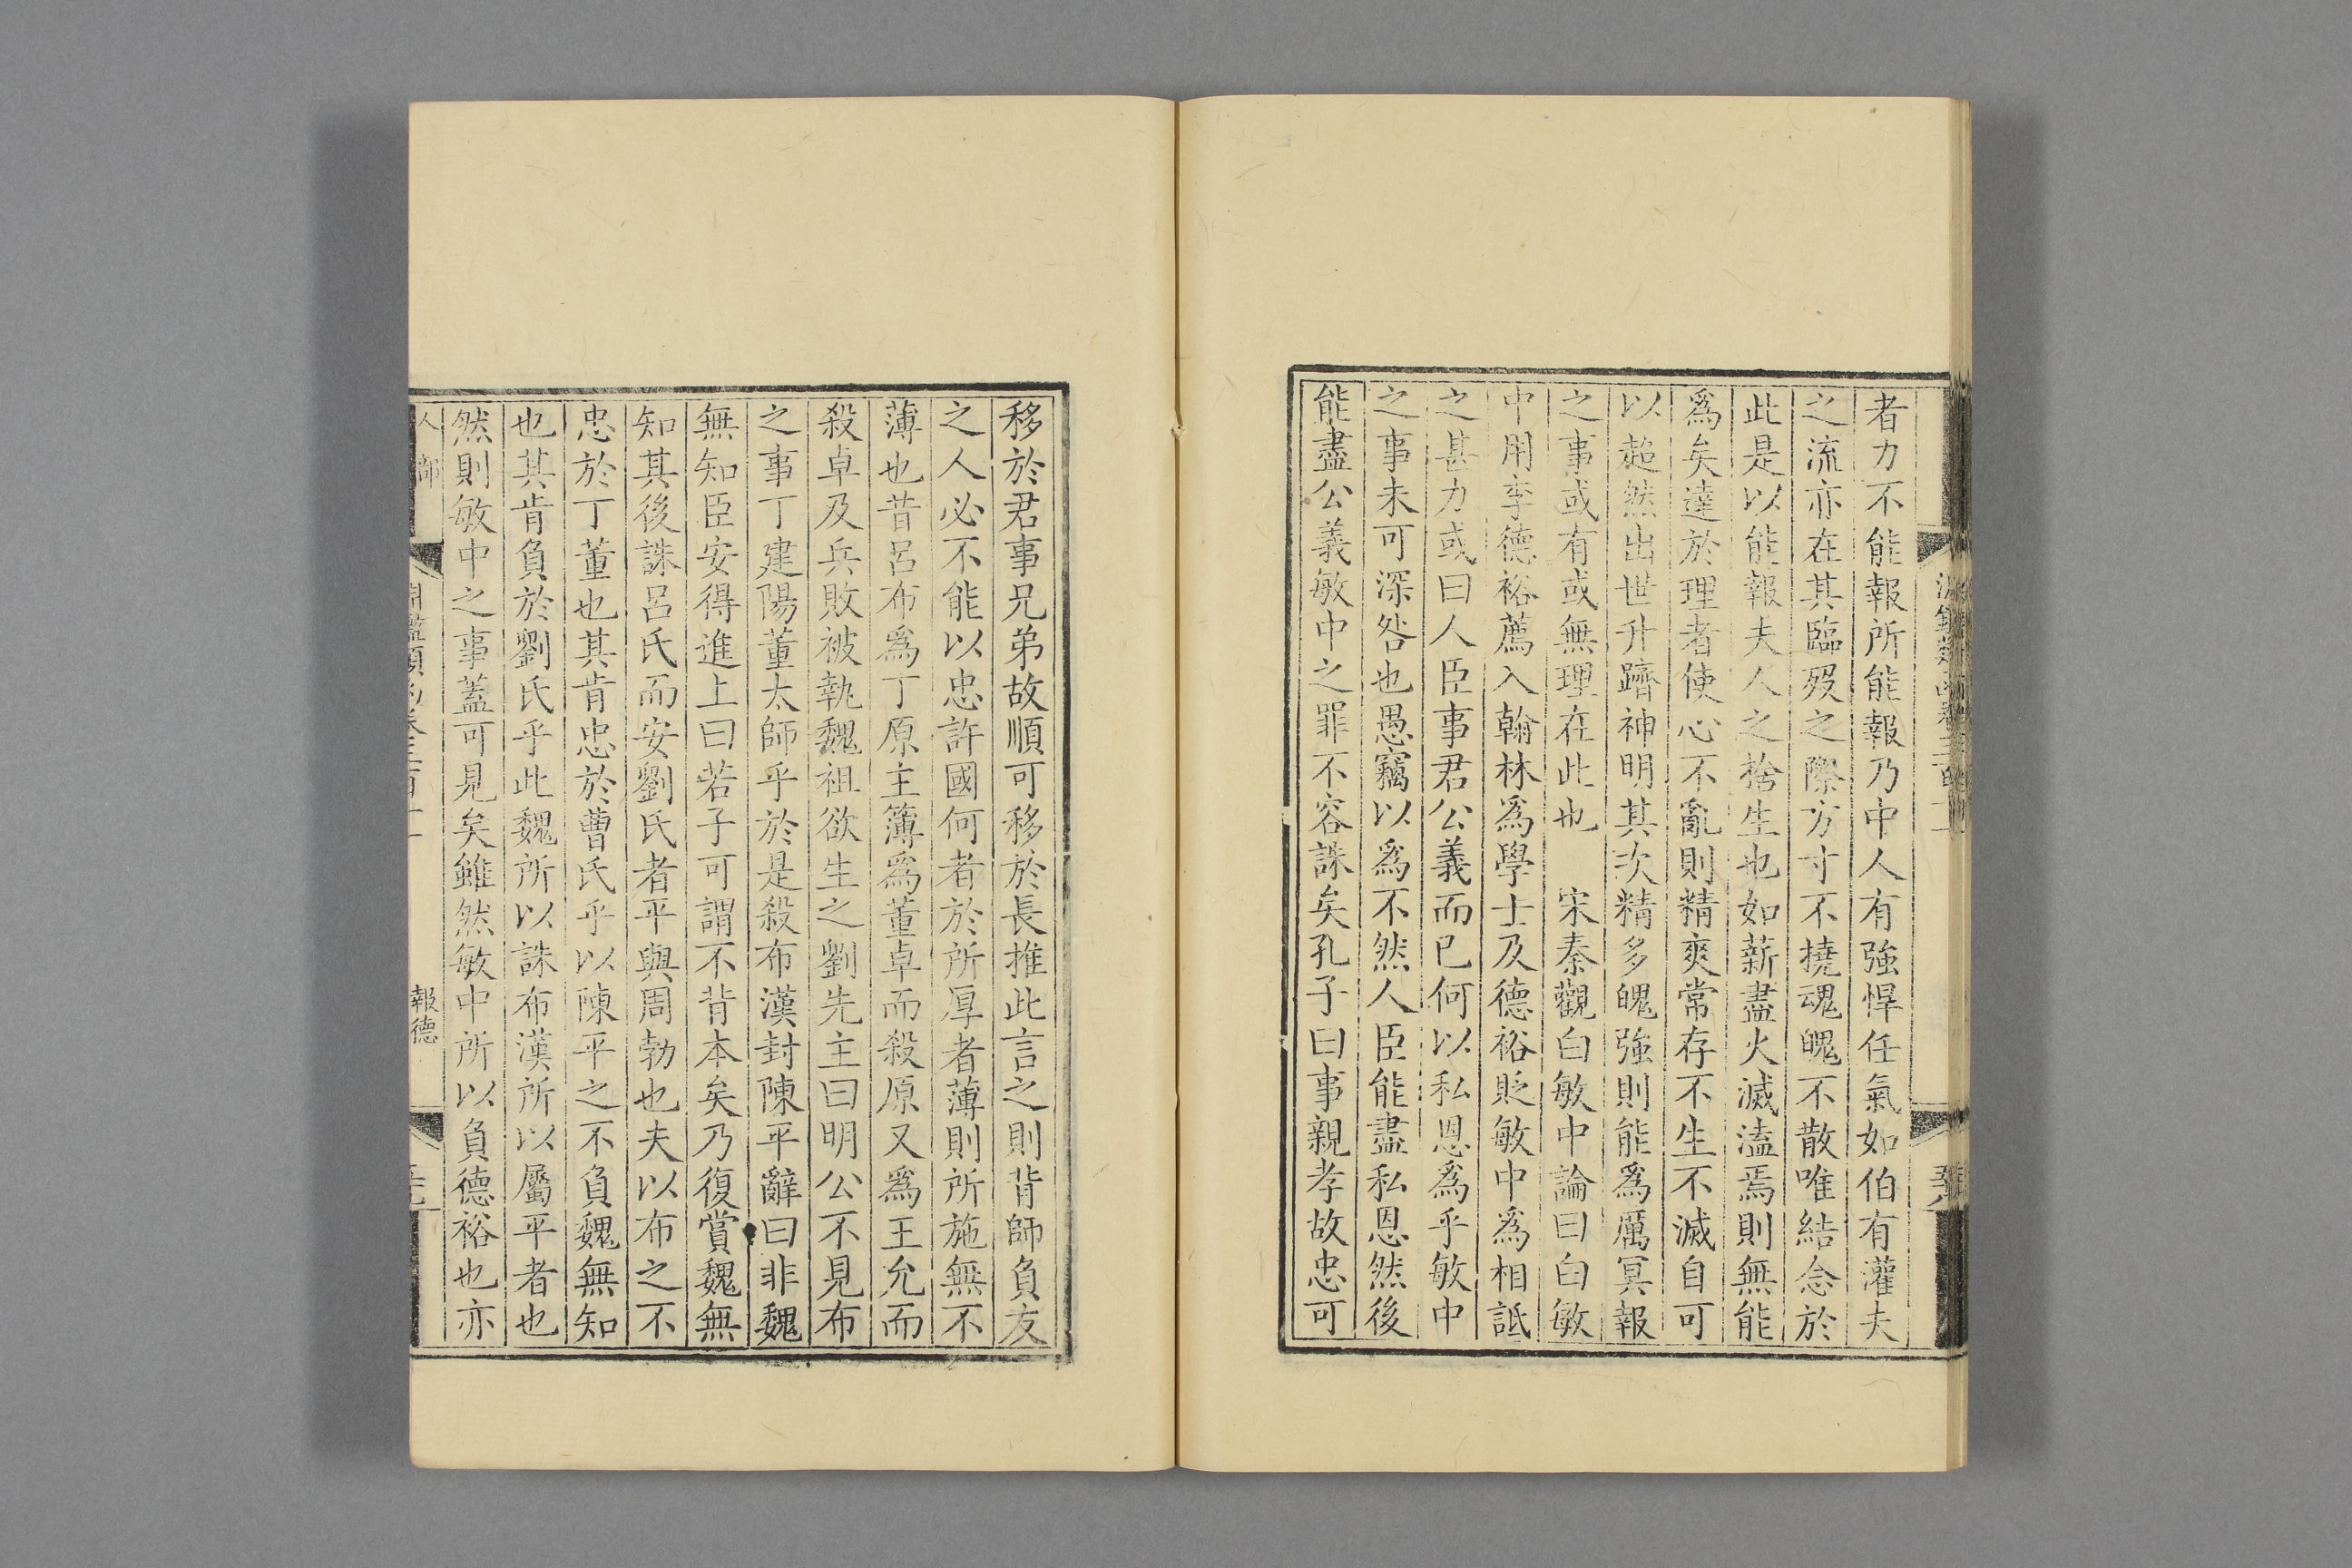 者力不能報所能報乃中人有強悍任氣如伯有灌夫
之流亦在其臨歿之際方寸不撓魂魄不散唯結念於
此是以能報夫人之捨生也如薪盡火滅溘焉則無能
爲矣達於理者使心不亂則精爽常存不生不滅自可
以超然出世升躋神明其次精多魄強則能爲厲冥報
之事或有或無理在此也　宋秦觀白敏中論曰白敏
中用李德裕薦入翰林爲學士及德裕貶敏中爲相詆
之甚力或曰人臣事君公義而已何以私恩爲乎敏中
之事未可深咎也愚竊以爲不然人臣能盡私恩然後
能盡公義敏中之罪不容誅矣孔子曰事親孝故忠可
移於君事兄弟故順可移於長推此言之則背師負友
之人必不能以忠許國何者於所厚者薄則所施無不
薄也昔呂布爲丁原主簿爲董卓而殺原又爲王允而
殺卓及兵敗被執魏祖欲生之劉先主曰明公不見布
之事丁建陽董太師乎於是殺布漢封陳平辭曰非魏
無知臣安得進上曰若子可謂不背本矣乃復賞魏無
知其後誅呂氏而安劉氏者平與周勃也夫以布之不
忠於丁董也其肯忠於曹氏乎以陳平之不負魏無知
也其肯負於劉氏乎此魏所以誅布漢所以屬平者也
然則敏中之事蓋可見矣雖然敏中所以負德裕也亦
人部
報德